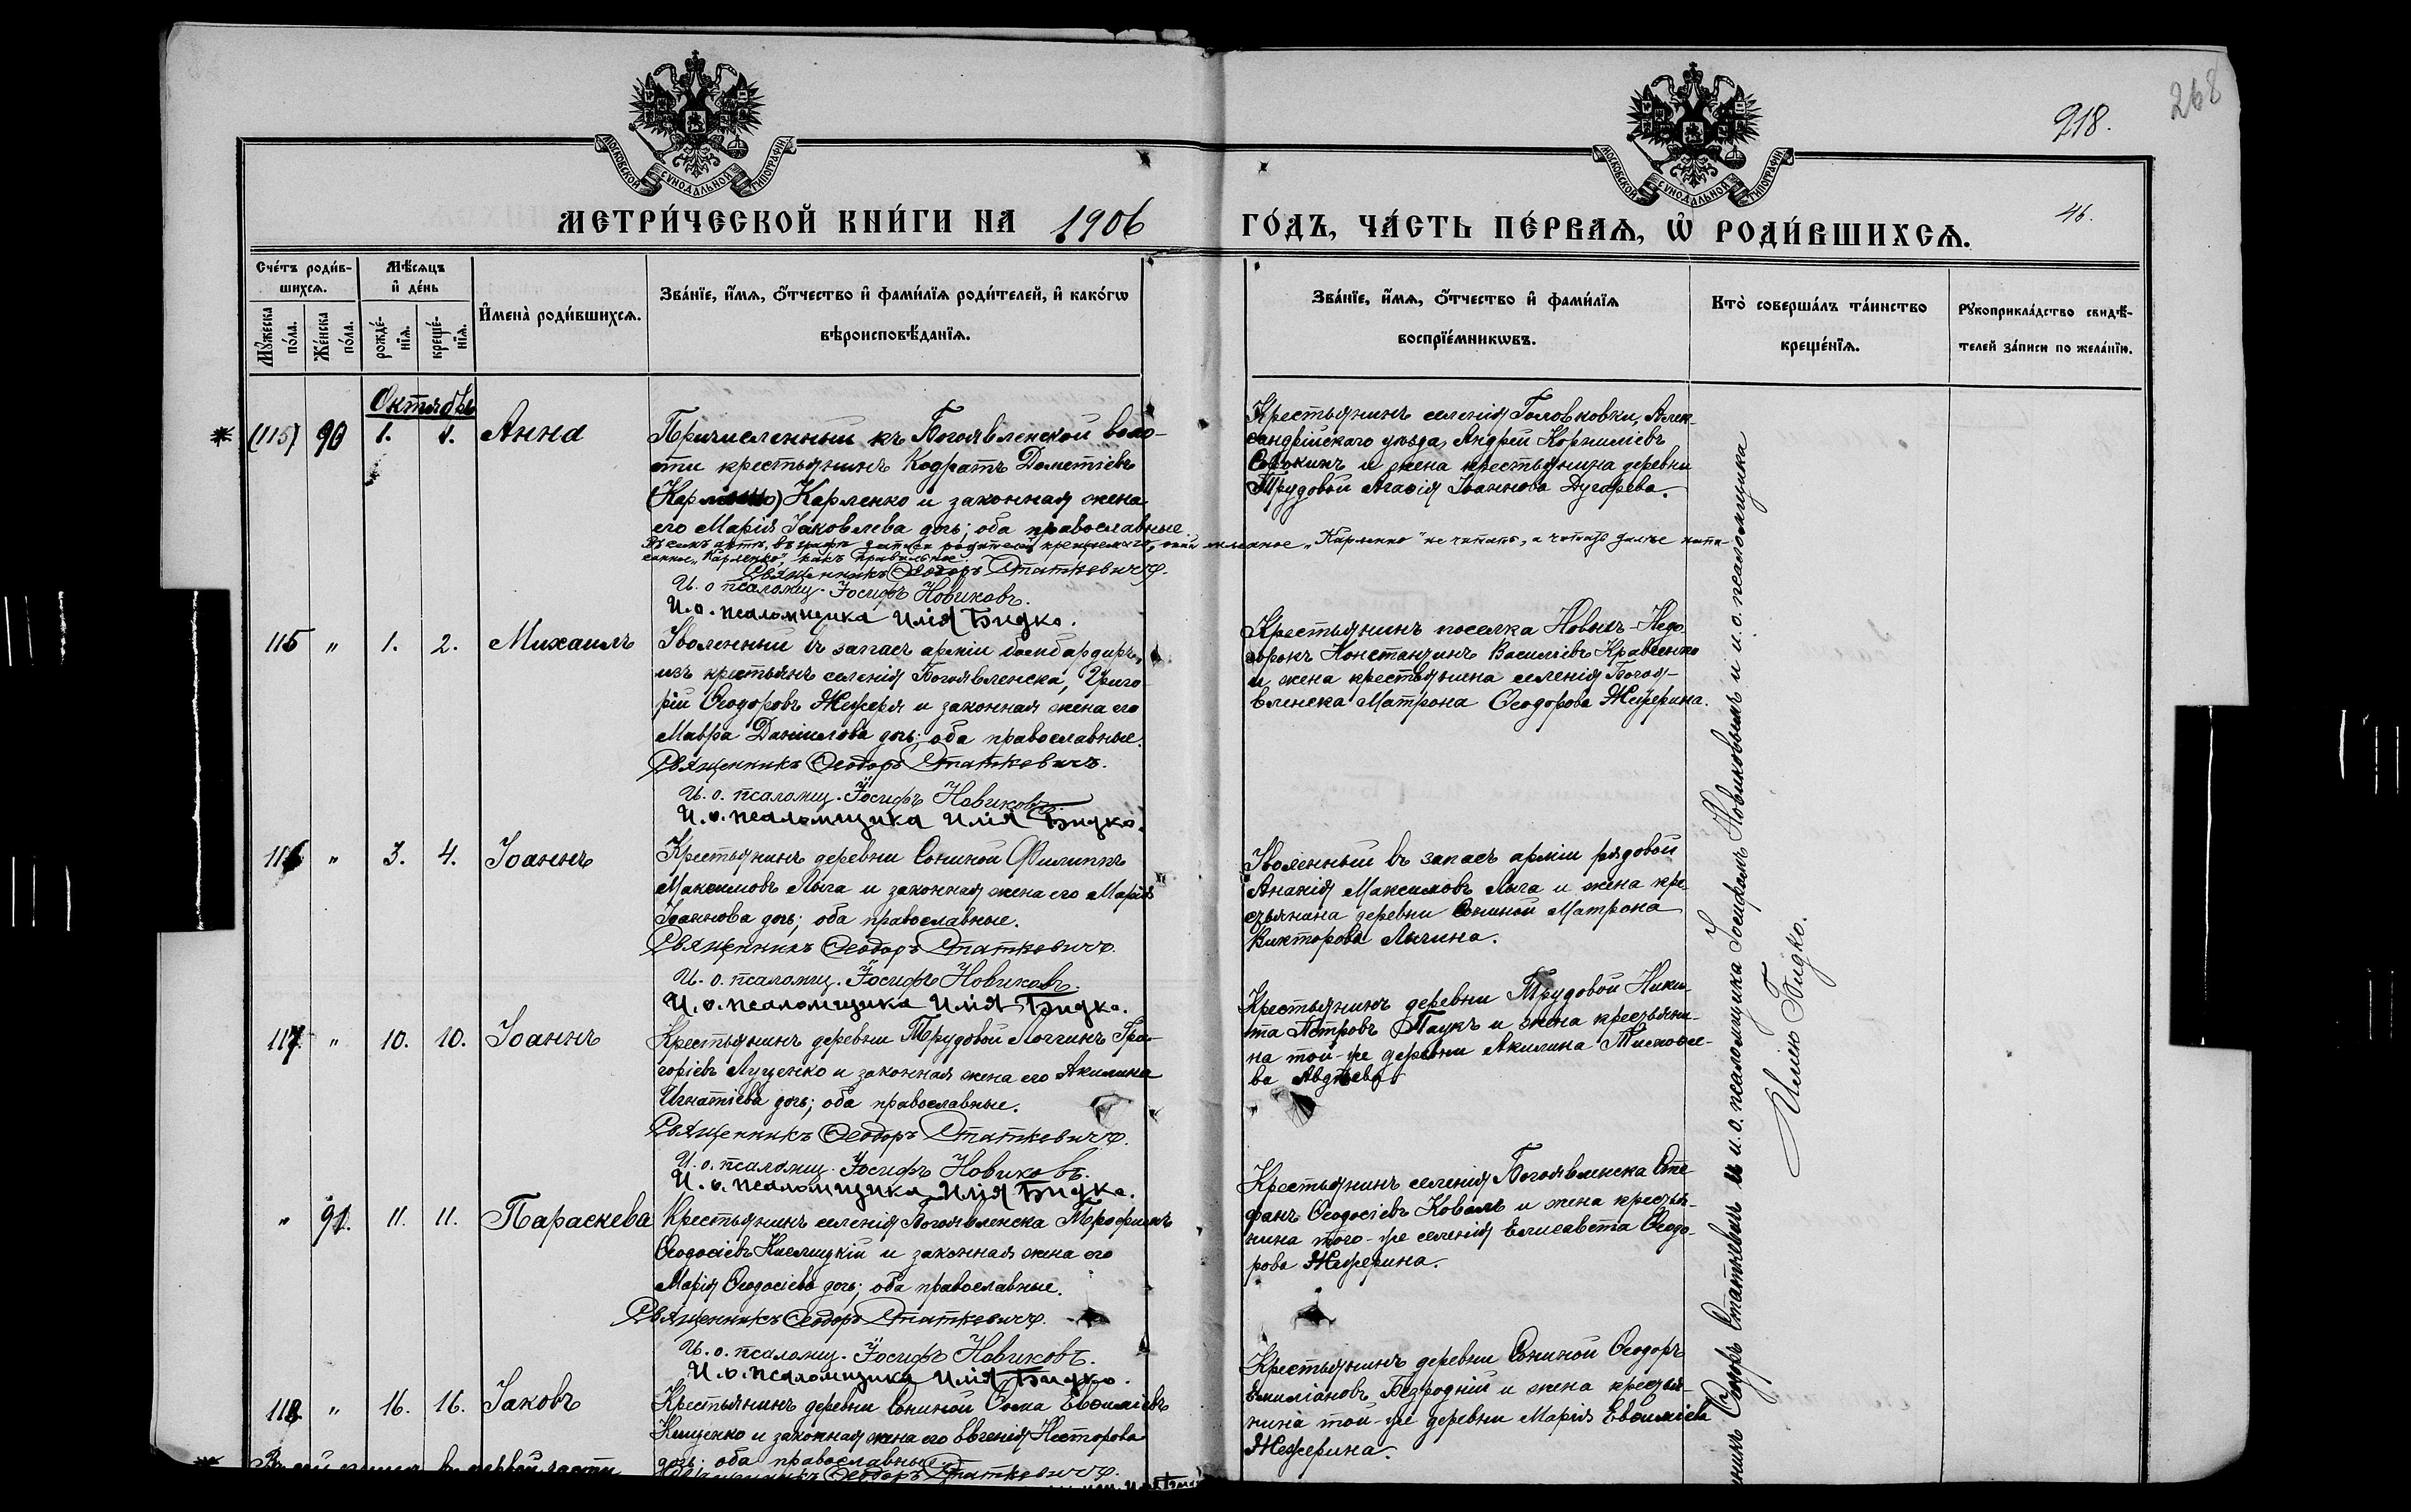 268
218.
46.
МОСКОВСКОЙ СѴНОДАЛЬНОЙ ТИПОГРАФІИ
МОСКОВСКОЙ СѴНОДАЛЬНОЙ ТИПОГРАФІИ
МЕТРИ́ЧЕСКОЙ КНИ́ГИ НА 1906 ГО́ДЪ, ЧА́СТЬ ПЕ́РВАѦ, Ѡ҆ РОДИ́ВШИХСѦ.
Сче́тъ роди́в-
шихсѧ.
Мꙋ́жеска по́ла.
Же́нска по́ла.
Мѣ́сѧцъ
и҆ де́нь
рожде́-
нїѧ.
креще́-
нїѧ.
И҆мена̀ роди́вшихсѧ.
Зва́нїе, и҆́мѧ, ѻ҆́тчество и҆ фами́лїѧ роди́телей, и҆ како́гѡ
вѣроисповѣ́данїѧ.
Зва́нїе, и҆́мѧ, ѻ҆́тчество и҆ фами́лїѧ
воспрїе́мникѡвъ.
Кто̀ соверша́лъ та́инство
креще́нїѧ.
Рꙋкоприкла́дство свидѣ́-
телей за́писи по жела́нїю.
Октябрь
* (115) 90 1. 1. Анна
Причисленный къ Богоявленской воло-
сти крестьянинъ Кодратъ Дометіевъ
Карленко и законная жена
его Марія Іаковлева дочь; оба православные
Священникъ Ѳеодоръ Статкевичъ.
И. о псаломщ. Іосифъ Новиковъ.
И. о. псаломщика Илія Бидко.
Крестьянинъ селенія Головковки, Алек-
сандрійскаго уѣзда, Андрей Корниліевъ
Сорокинъ и жена крестьянина деревни
Трудовой Агафія Іоаннова Дугарева.
115 " 1. 2. Михаилъ
Уволенный въ запасъ арміи бомбардиръ,
изъ крестьянъ селенія Богоявленска, Григо-
рій Ѳеодоровъ Жежеря и законная жена его
Мавра Даніилова дочь; оба православные.
Священникъ Ѳеодоръ Статкевичъ.
И. о. псаломщ. Іосифъ Новиковъ.
И. о. псаломщика Илія Бидко.
Крестьянинъ поселка Новыхъ-Недо-
Константинъ Василіевъ Кравченко
и жена крестьянина селенія Богоя-
вленска Матрона Ѳеодорова Жежерина.
116 " 3. 4. Іоаннъ
Крестьянинъ деревни Сониной Филиппъ
Максимовъ Лыга и законная жена его Марія
Іоаннова дочь; оба православные.
Священникъ Ѳеодоръ Статкевичъ.
И. о. псаломщ. Іосифъ Новиковъ.
И. о. псаломщика Илія Бидко.
Уволенный въ запасъ арміи рядовой
Ананія Максимовъ Лыга и жена кре-
стьянина деревни Сониной Матрона
Викторова Лычина.
117. " 10. 10. Іоаннъ
Крестьянинъ деревни Трудовой Логгинъ Гри-
горіевъ Луценко и законная жена его Акилина
Игнатіева дочь; оба православные.
Священникъ Ѳеодоръ Статкевичъ.
И. о. псаломщ. Іосифъ Новиковъ.
И. о. псаломщика Илія Бидко.
Крестьянинъ деревни Трудовой Ники-
та Петровъ Паукъ и жена крестьяни-
на той-же деревни Акилина Тимоѳее-
ва Авдѣева
" 91. 11. 11. Параскева
Крестьянинъ селенія Богоявленска Трофимъ
Ѳеодосіевъ Кислицкій и законная жена его
Марія Ѳеодосіева дочь; оба православные.
Священникъ Ѳеодоръ Статкевичъ.
И. о. псаломщ. Іосифъ Новиковъ.
И. о. псаломщика Илія Бидко.
Крестьянинъ селенія Богоявленска Сте-
фанъ Ѳеодосіевъ Коваль и жена крестья-
нина того-же селенія Елисавета Ѳеодо-
рова Жежерина.
118. " 16. 16. Іаковъ
Крестьянинъ деревни Сониной Ѳома Евѳиміевъ
Кищенко и законная жена его Евгенія Несторова
дочь; оба православные.
Священникъ Ѳеодоръ Статкевичъ.
Крестьянинъ деревни Сониной Ѳеодоръ
Емиліановъ Безродній и жена крестья-
нина той-же деревни Марія Евѳиміева
Жежерина.
Ѳеодоръ Статкевичъ и и. о. псаломщика Іосифомъ Новиковымъ и и. о. псаломщика
Иліею Бидко.